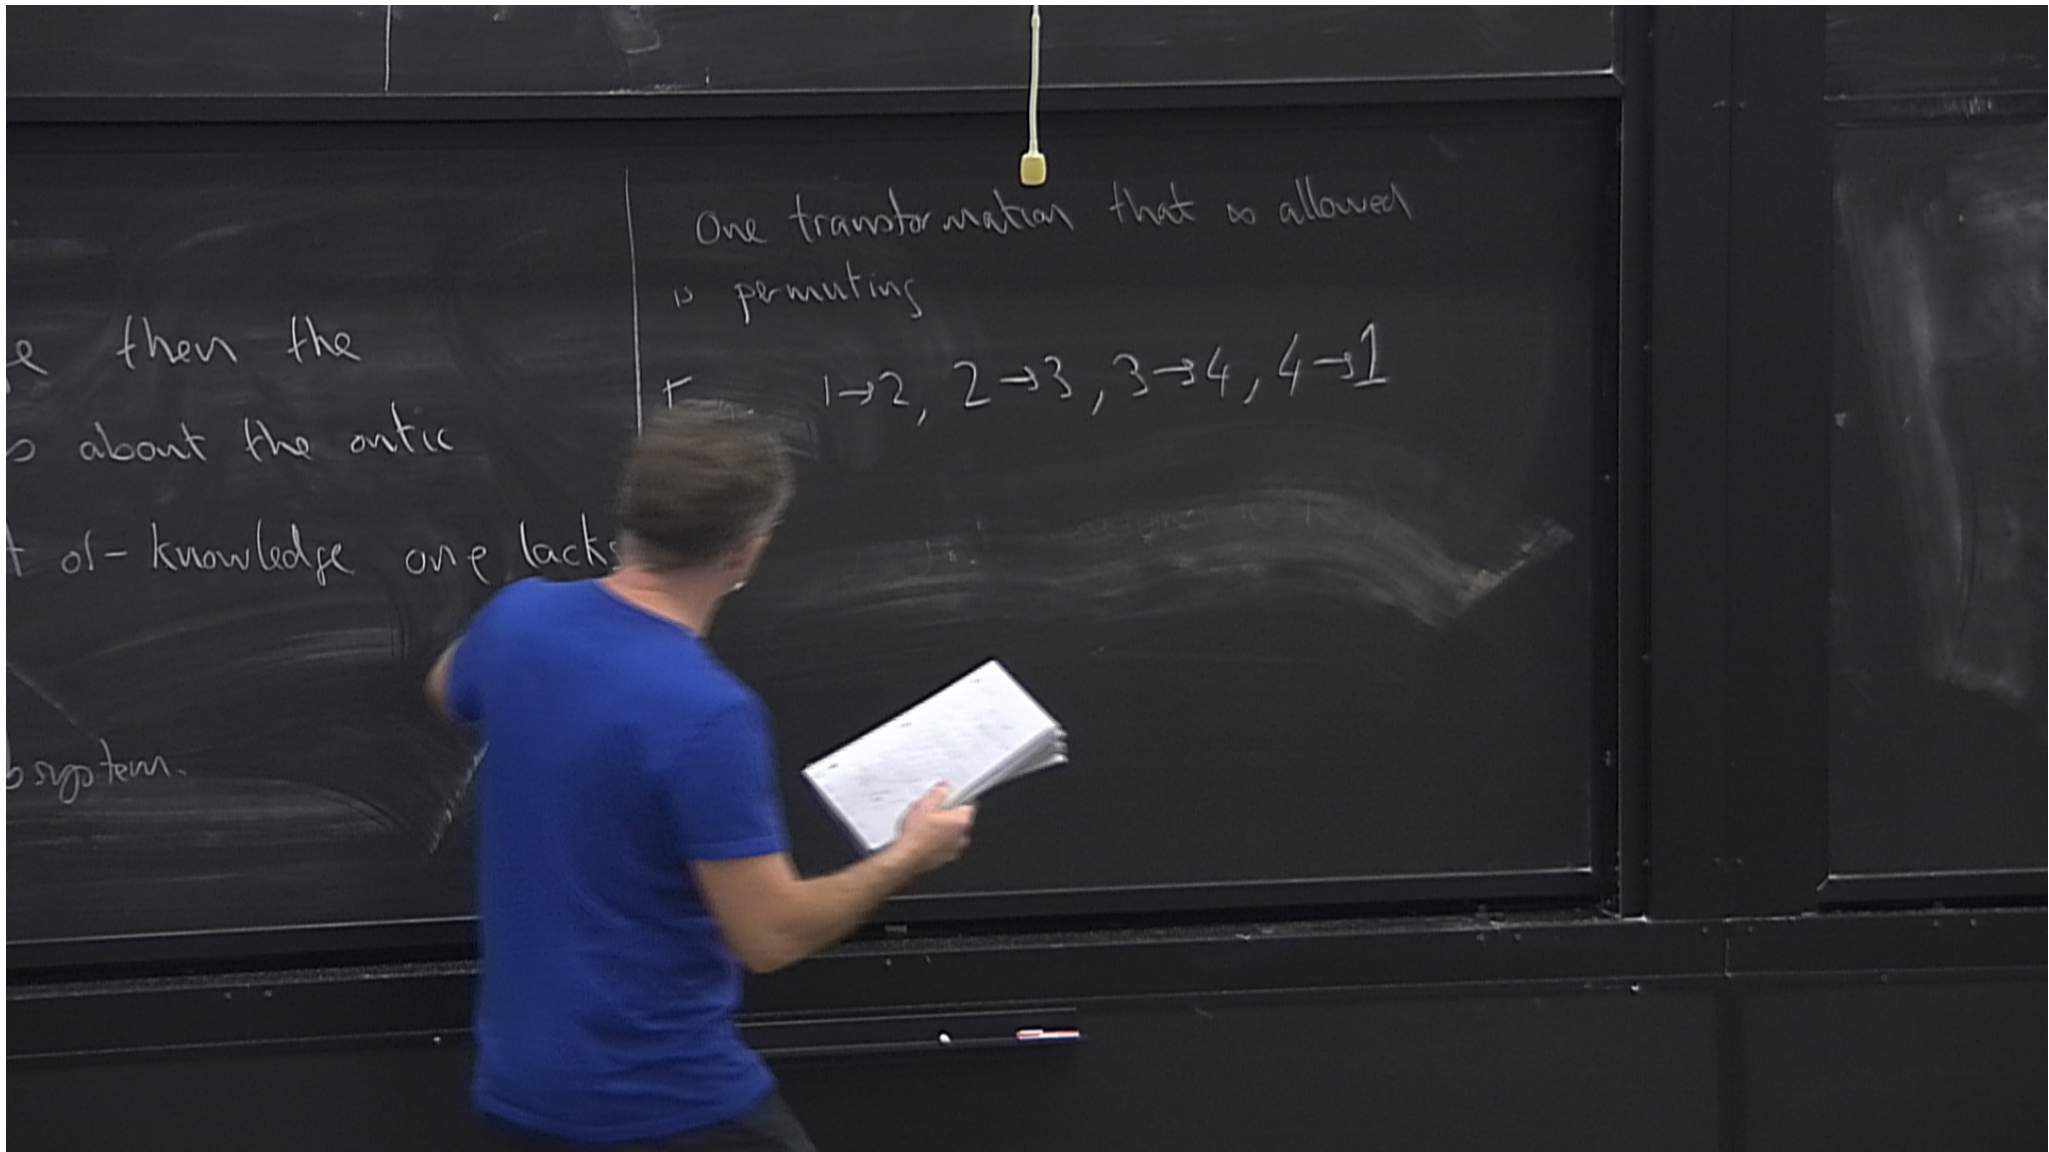 then the
about the ontic
of knowledge one lacks
system.
One transformation that is allowed
is permuting
1→2, 2→3, 3→4, 4→1